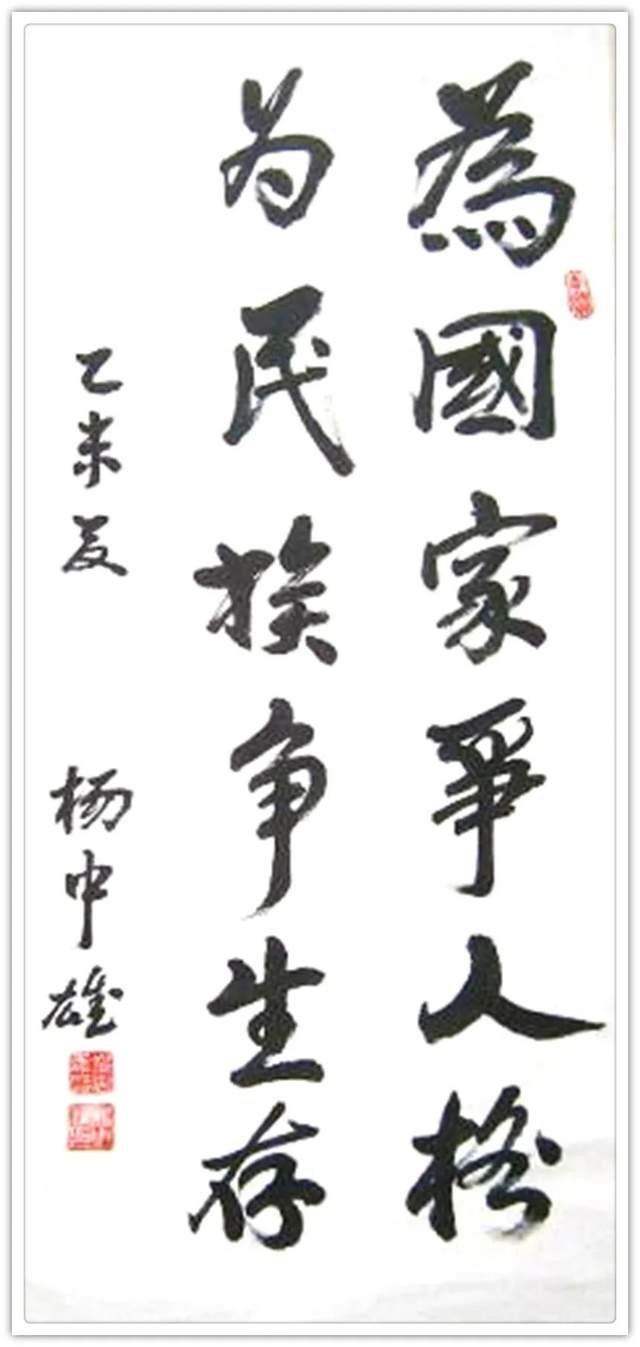 為國家爭人格
为民族争生存
乙未夏
杨中雄